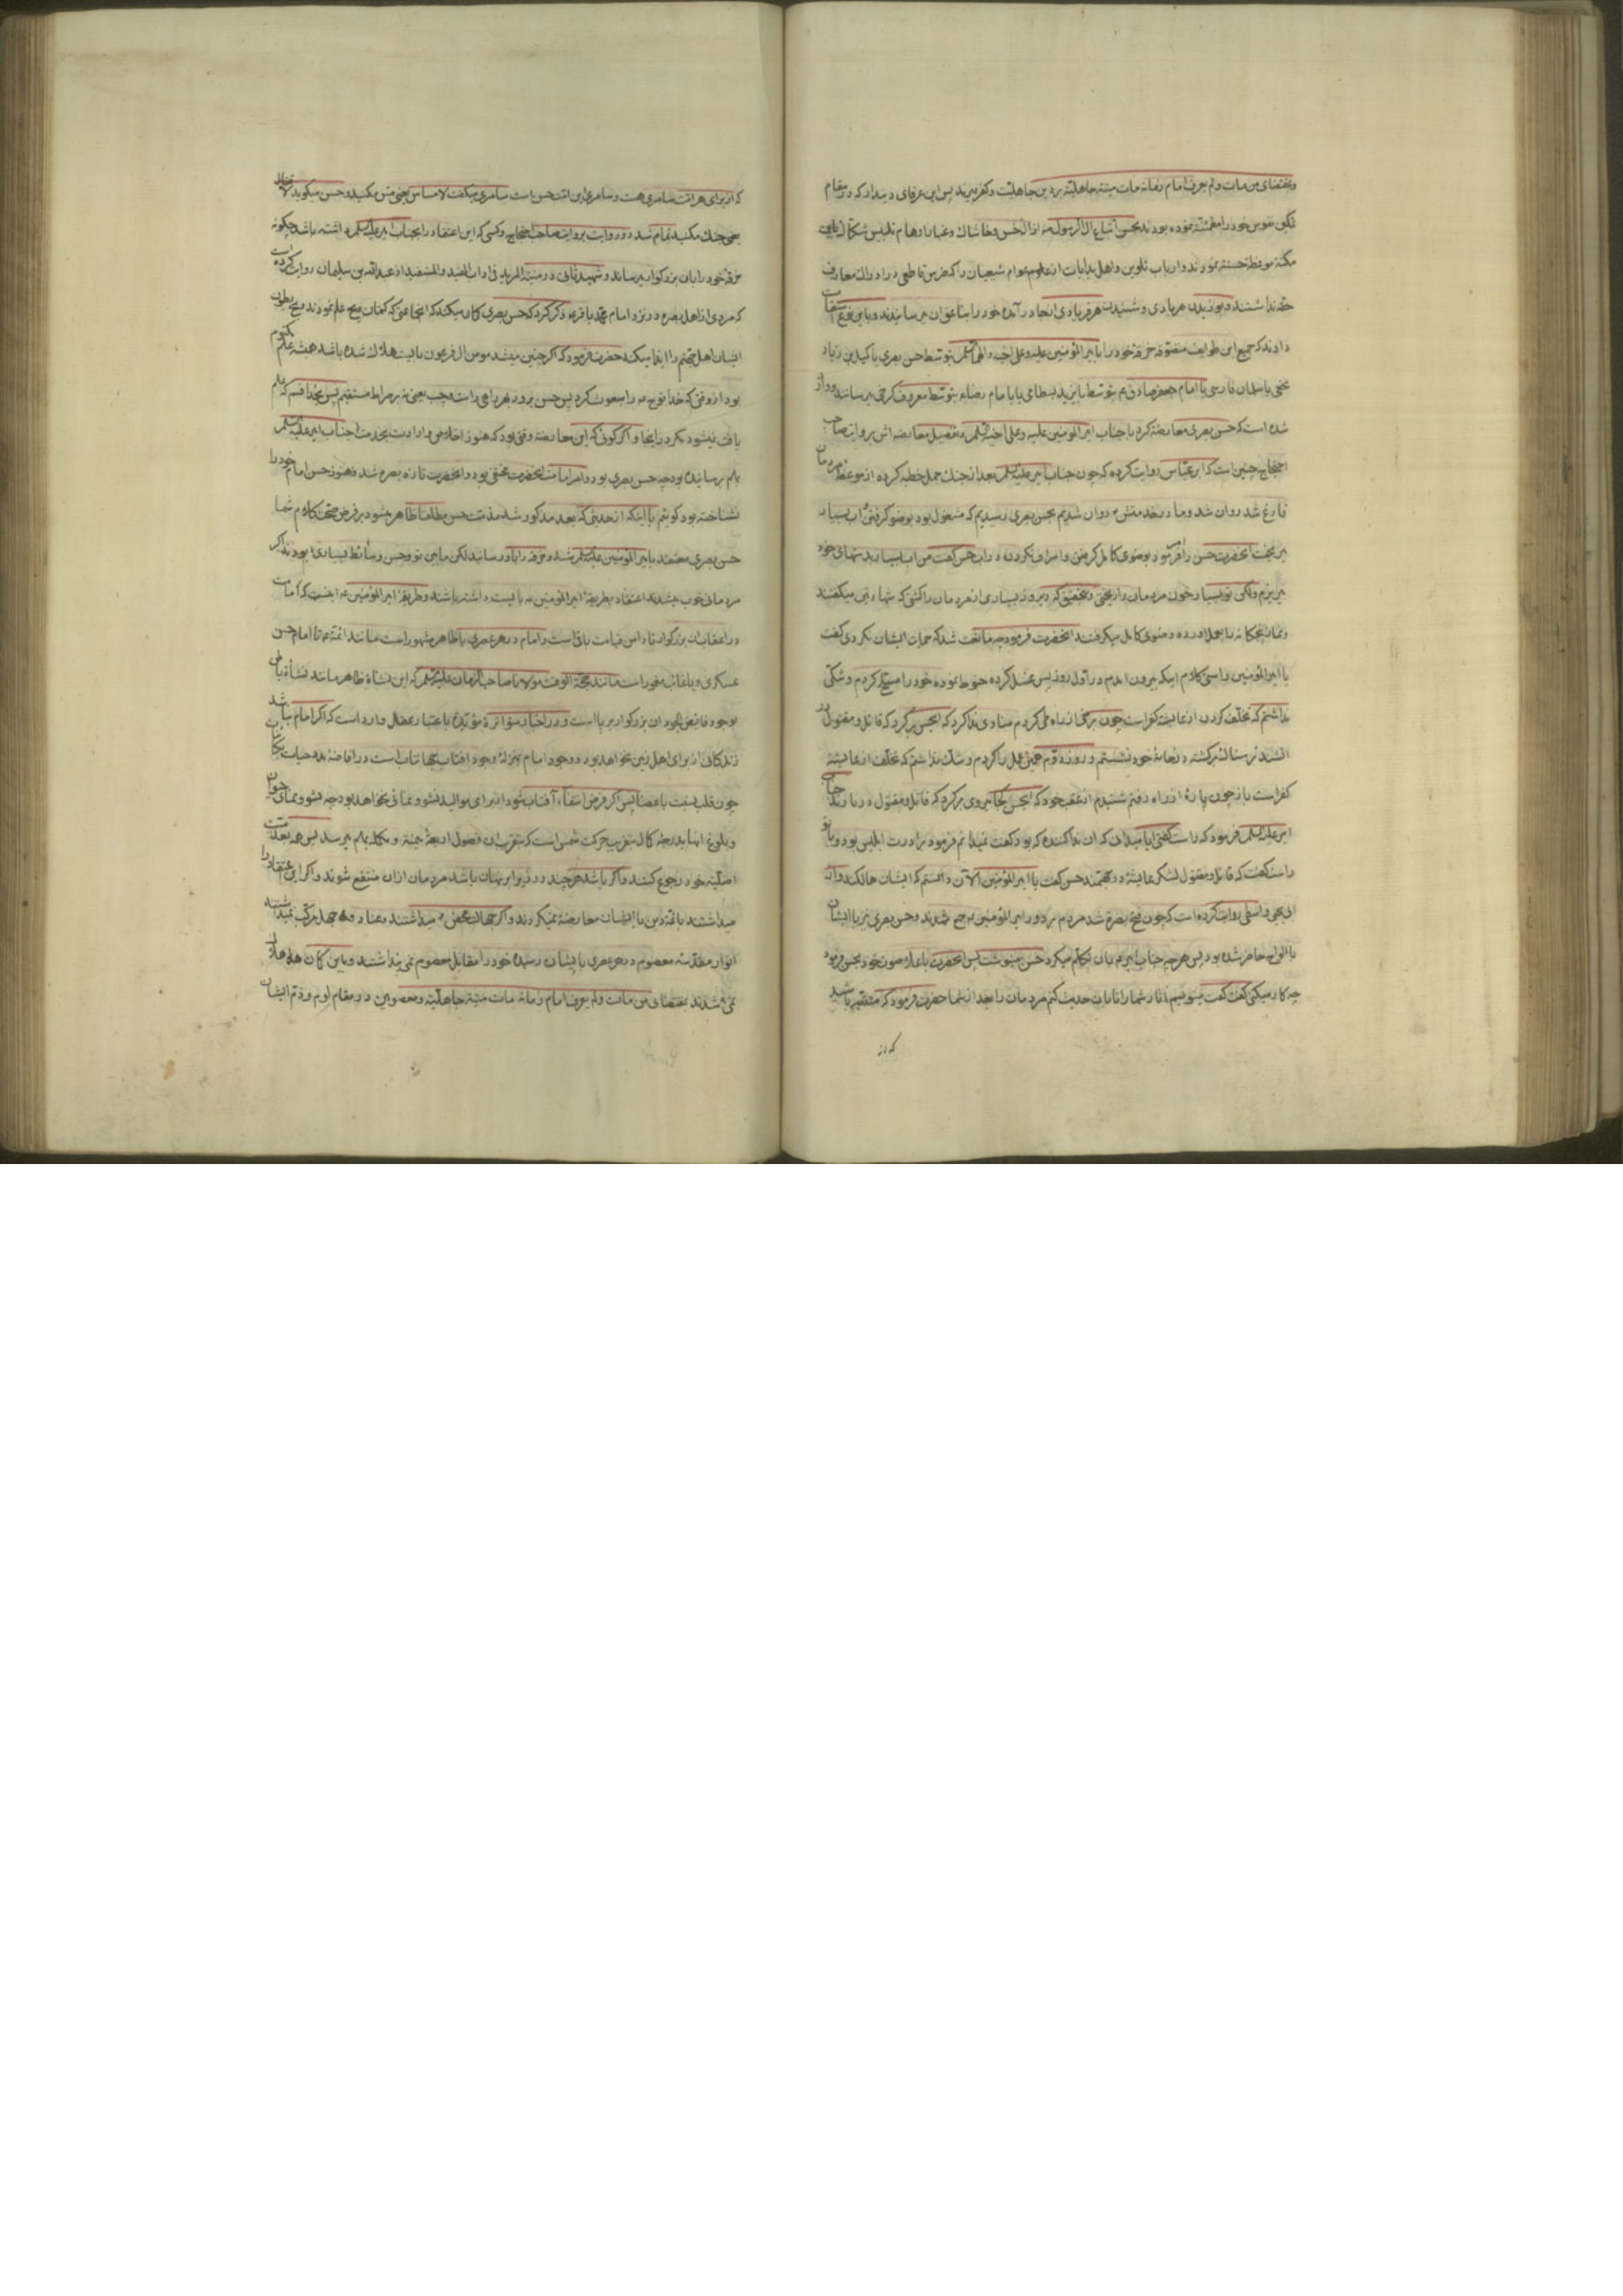 ومقتضای من مات ولم یعرف امام زمانه مات میتة جاهلیّة بر دین جاهلیّت وکفر میرند پس این عرفای که در مقام
تکمیل نفوس خود را مطمئنّه نموده بودند بحسن اتباع آل الرسول از الخس وخاشاک وغبار اوهام تلبیس
مکنة موعظه حسنه نمودند وارباب تلوین واهل بدایات از علوم عوام شیعیان را که ضرس قاطعی در ادراک معارف
حقه نداشتند وبوزیدن هر بادی وشنیدن هر فریادی از جا در آمده خود را بتاعق ان میرسانیدند وباین نوع
دادند که جمیع این طوایف متصوّفه خرقه خود را بامیر المؤمنین علیه وعلی اخیه واله السلم بتوسط حسن بصری یا کمیل بن زیاد
نخعی یا سلمان فارسی یا امام جعفر صادق ع بتوسط بایزید بسطامی یا بامام رضا ع بتوسط معروف کرخی میرسانند و
شده است که حسن بصری معارضه کرد با جناب امیر المؤمنین علیه وعلی اخیه السلم وتفصیل معارضه اش بروایت صاحب
احتجاج چنین است که ابن عبّاس روایت کرده که چون جناب امیر علیه السلم بعد از جنک جمل خطبه کرده از موعظه مردمان
فارغ شد روان شد وما در خدمتش روان شدیم بحسن بصری رسیدیم که مشغول بود بوضو کرفتن اب بسیار
میریخت انحضرت حسن را فرمود بوضوی کامل کرفتن واسراف نکردن در اب حسن کفت من اب بسیار بدستهای خود
میریزم ولکن تو بسیار خون مردمان را ریختی وبتحقیق که دیروز بسیاری از مردمان را کشتی که شهادتین میکفتند
ونماز پنجکانه را بعمل اورده وضوی کامل میکرفتند انحضرت فرمود چه مانعت شد که حمایت ایشان نکردی کفت
یا امیر المؤمنین راستی کلام اینکه بیرون امدم در اوّل روز پس غسل کرده حنوط نموده خود را مسلح کردم وشکّی
نداشتم که تخلّف کردن از عایشه کفر است چون برخی از راه طی کردم منادی ندا کرد که ایحسن برکرد که قاتل ومقتول در
اتشند ترسناک برکشته در خانهٔ خود نشستم وروز دوم همین عمل را کردم وشک نداشتم که تخلّف از عایشه
کفر است باز چون پارهٔ از راه رفتم شنیدم از عقب خود که ایحسن بکجا میروی برکرد که قاتل ومقتول در نارند جناب
امیر علیه السلم فرمود که راست کفتی ایا میدانی که ان ندا کننده که بود کفت نمیدانم فرمود برادرت ابلیس بود وبا تو
راست کفت که قاتل ومقتول لشکر عایشه در جهنّمند حسن کفت یا امیر المؤمنین الآن دانستم که ایشان هالکند واز
ابی یحیی واسطی روایت کرده است که چون فتح بصره شد مردم بر دور امیر المؤمنین جمع شدند وحسن بصری نیز با ایشان
با الواح حاضر شده بود پس هر چه جناب امیر ع بان تکلّم میکرد حسن مینوشت پس انحضرت باعلا صوت خود بحسن فرمود
چه کار میکنی کفت کفت مینویسم اثار شما را تا بان حدیث کنم مردمان را بعد از شما حضرت فرمود که متنبّه باشید
که از
که از برای هر امّت سامری هست وسامری این امّت حسن است سامری میکفت لا مساس یعنی مس مکنید وحسن میکوید لا قتال
یعنی جنک مکنید تمام شد دو روایت بروایت صاحب احتجاج وکسی که این اعتقاد را بجناب امیر علیه السلم داشته باشد چکونه
خرقه خود را بان بزرکوار میرساند وشهید ثانی در منیة المرید فی اداب المفید والمستفید از عبد الله بن سلیمان روایت کرده است
که مردی از اهل بصره در نزد امام محمّد باقر ع ذکر کرد که حسن بصری کمان میکند که انجماعتی که کتمان علم نمودند ریح بطون
ایشان اهل جهنّم را ایذا میکند حضرت فرمود که اکر چنین میشد مومن ال فرعون بایست هلاک شده باشد همیشه علم مکتوم
بود از وقتی که خدا نوح ع را مبعوث کرد پس حسن برود بهر راهی راست وچپ یعنی نه بر صراط مستقیم پس بخدا قسم که علم
یافت نمیشود مکر در اینجا واکر کوئی که این معارضه وقتی بود که هنوز اخلاص وارادت بخدمت جناب امیر علیه السلم
بهم نرسانیده بود چه حسن بصری بود وامر امامت انحضرت مخفی بود وانحضرت تازه بصره شد وهنوز حسن امام خود را
نشناخته بود کوئیم با اینکه از حدیثی که بعد مذکور شد مذمّت حسن مطلقا ظاهر میشود بر فرض صحّت کلام شما
حسن بصری معتقد بامیر المؤمنین علیه السلم شد وخرقه را باو رسانید لکن ما بین تو وحسن وسائط بسیاری بودند اکر
مردمانی خوب میشدند اعتقاد بطریقهٔ امیر المؤمنین ع بایست داشته باشند وطریقهٔ امیر المؤمنین ع اینست که امامت
در اعقاب ان بزرکوار تا دامن قیامت باقی است وامام در هر عصری یا ظاهر مشهور است مانند ائمّه ع تا امام حسن
عسکری ویا غائب مغمور است مانند حجّة الوقت مولانا صاحب الزمان علیه السلم که این نشاة ظاهر مانند نشأة باطن
بوجود فایض الجود ان بزرکوار بر پا است ودر اخبار متواترة مؤیّدة باعتبار عقل وارد است که اکر امام نباشد
زندکانی از برای اهل زمین نخواهد بود ووجود امام بمنزلهٔ وجود افتاب جهانتاب است در افاضهٔ مدد حیات بکائنات
چون قلب نسبت باعضا پس اکر فرض انتفاء آفتاب شود از برای موالید نشو ونمائی نخواهد بود چه نشو ونمای حیوان
وبلوغ انها بدرجهٔ کمال بتقریب حرکت شمس است که بتقرب ان فصول اربعهٔ بهم میرسد پس همه بعدمیّت
اصلیّه خود رجوع کنند واکر باشد هر چند در زیر ابر پنهان باشد مردمان ازان منتفع شوند واکر این اعتقاد را
میداشتند با ائمّهٔ دین با ایشان معارضه نمیکردند واکر جهالت محض میداشتند وعناد وجهل مرکّب نمیداشتند
انوار مقدّسهٔ معصوم در هر عصری بایشان رسیده خود را مقابل معصوم نمی پنداشتند وباین کمان هلاک
نمی شدند بمقتضای من مات ولم یعرف امام زمانه مات میتة جاهلیّة ومعصومین در مقام لوم وذم ایشان